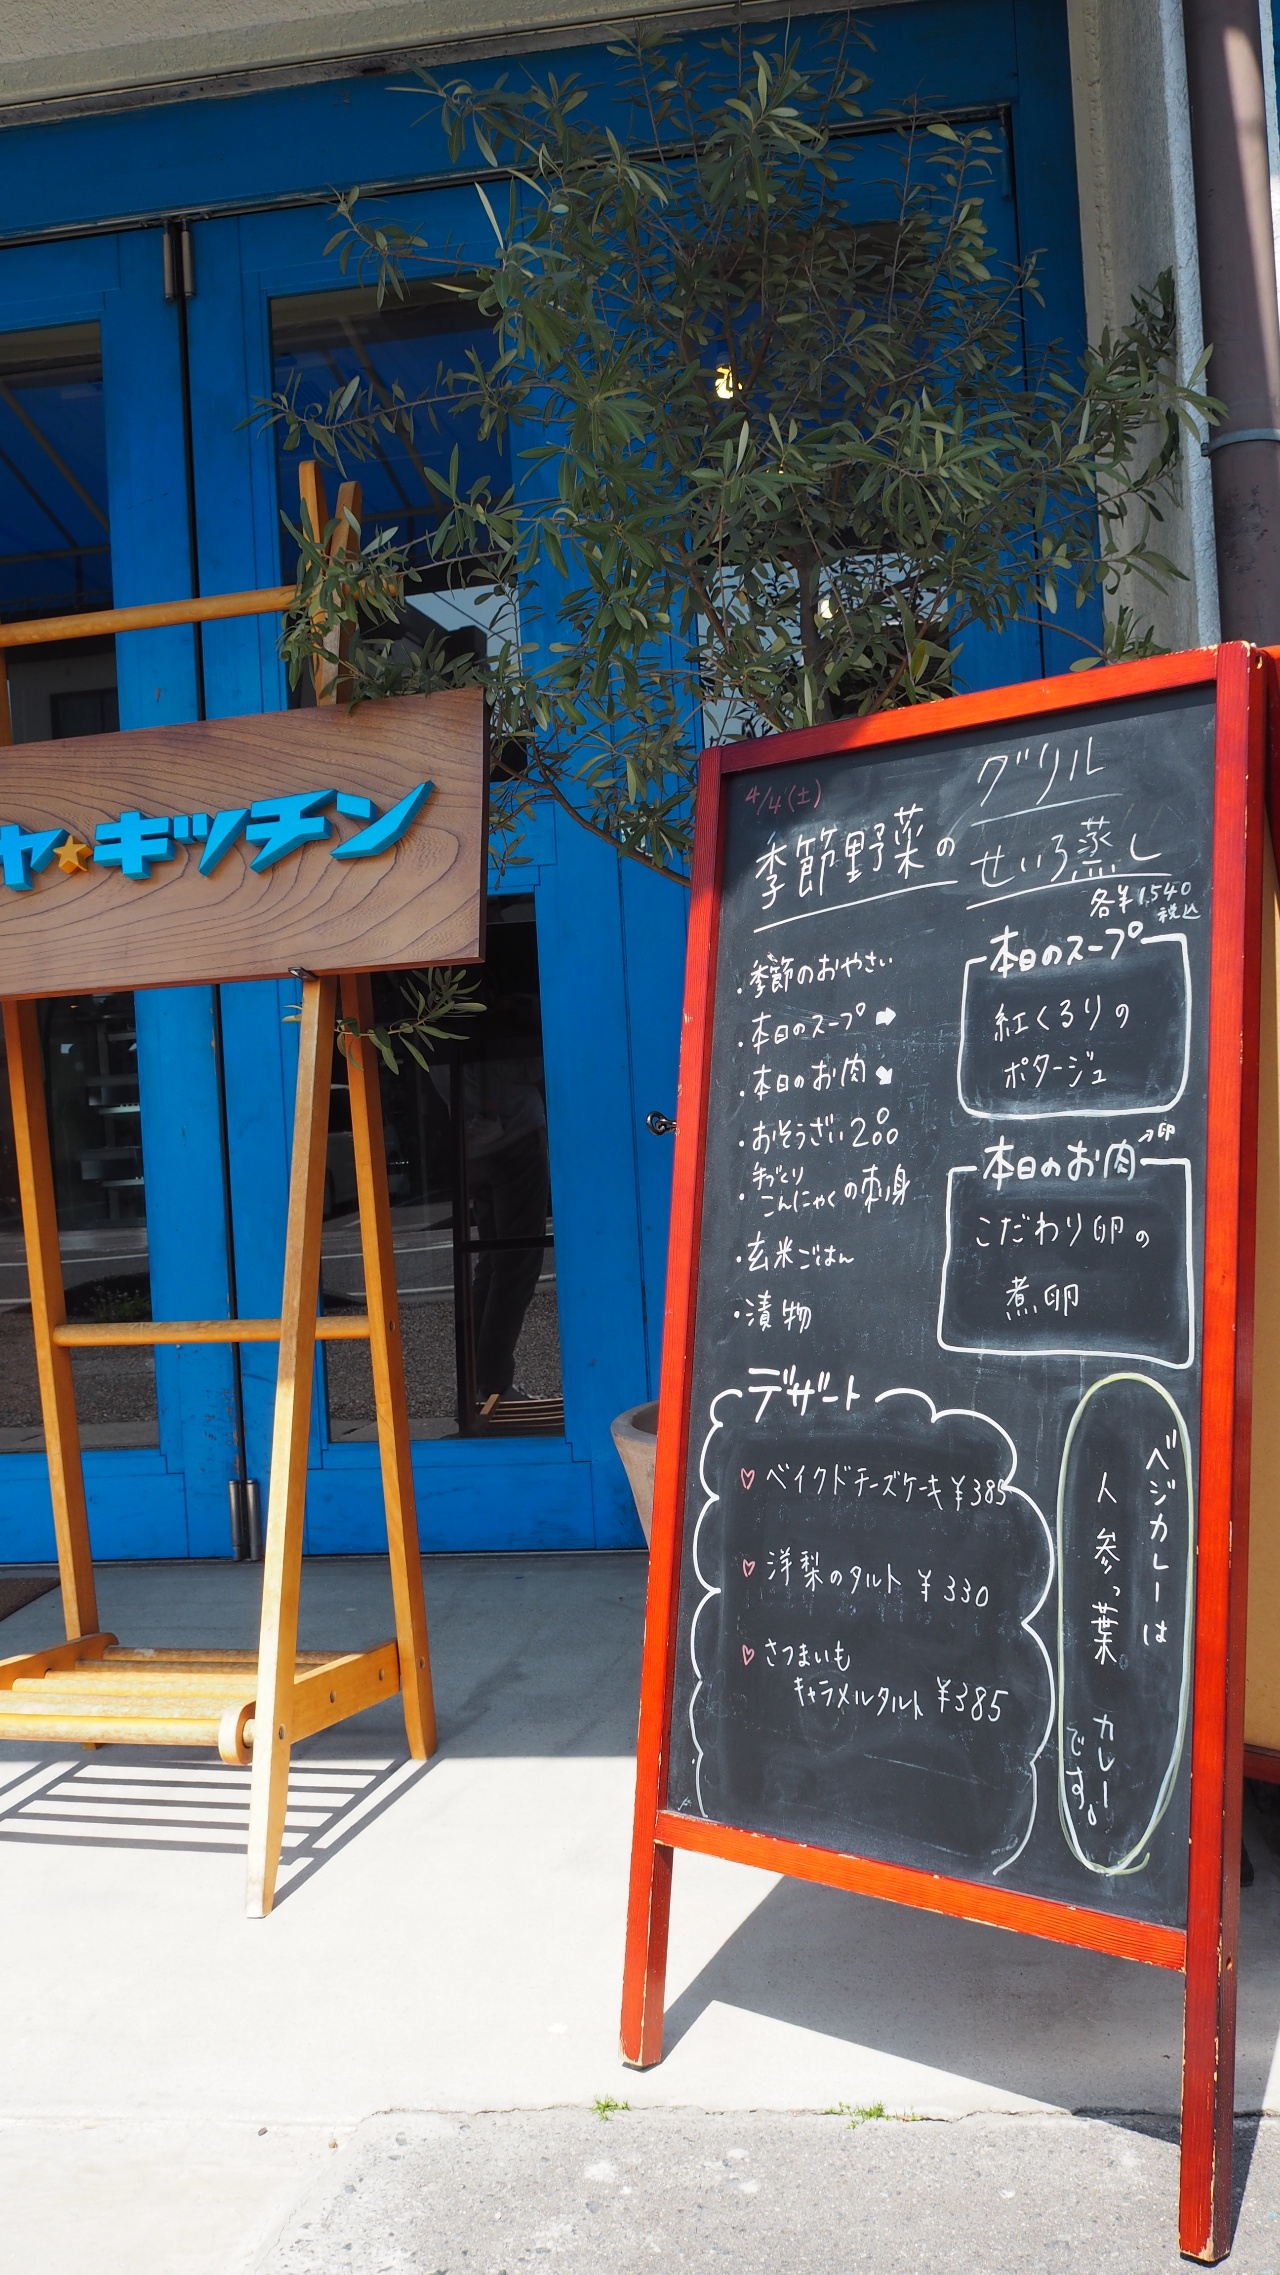 ヤ★キッチン
4/4(土)
季節野菜の
グリル
せいろ蒸し
各¥1,540
税込
・季節のおやさい
・本日のスープ➡
・本日のお肉
・おそうざい2
・手づくり
こんにゃくの刺身
・玄米ごはん
・漬物
本日のスープ
紅くるりの
ポタージュ
本日のお肉→卵
こだわり卵の
煮卵
デザート
♡ベイクドチーズケーキ¥385
♡洋梨のタルト ¥330
♡さつまいも
キャラメルタルト ¥385
ベジカレーは
人参っ葉。カレー
です。